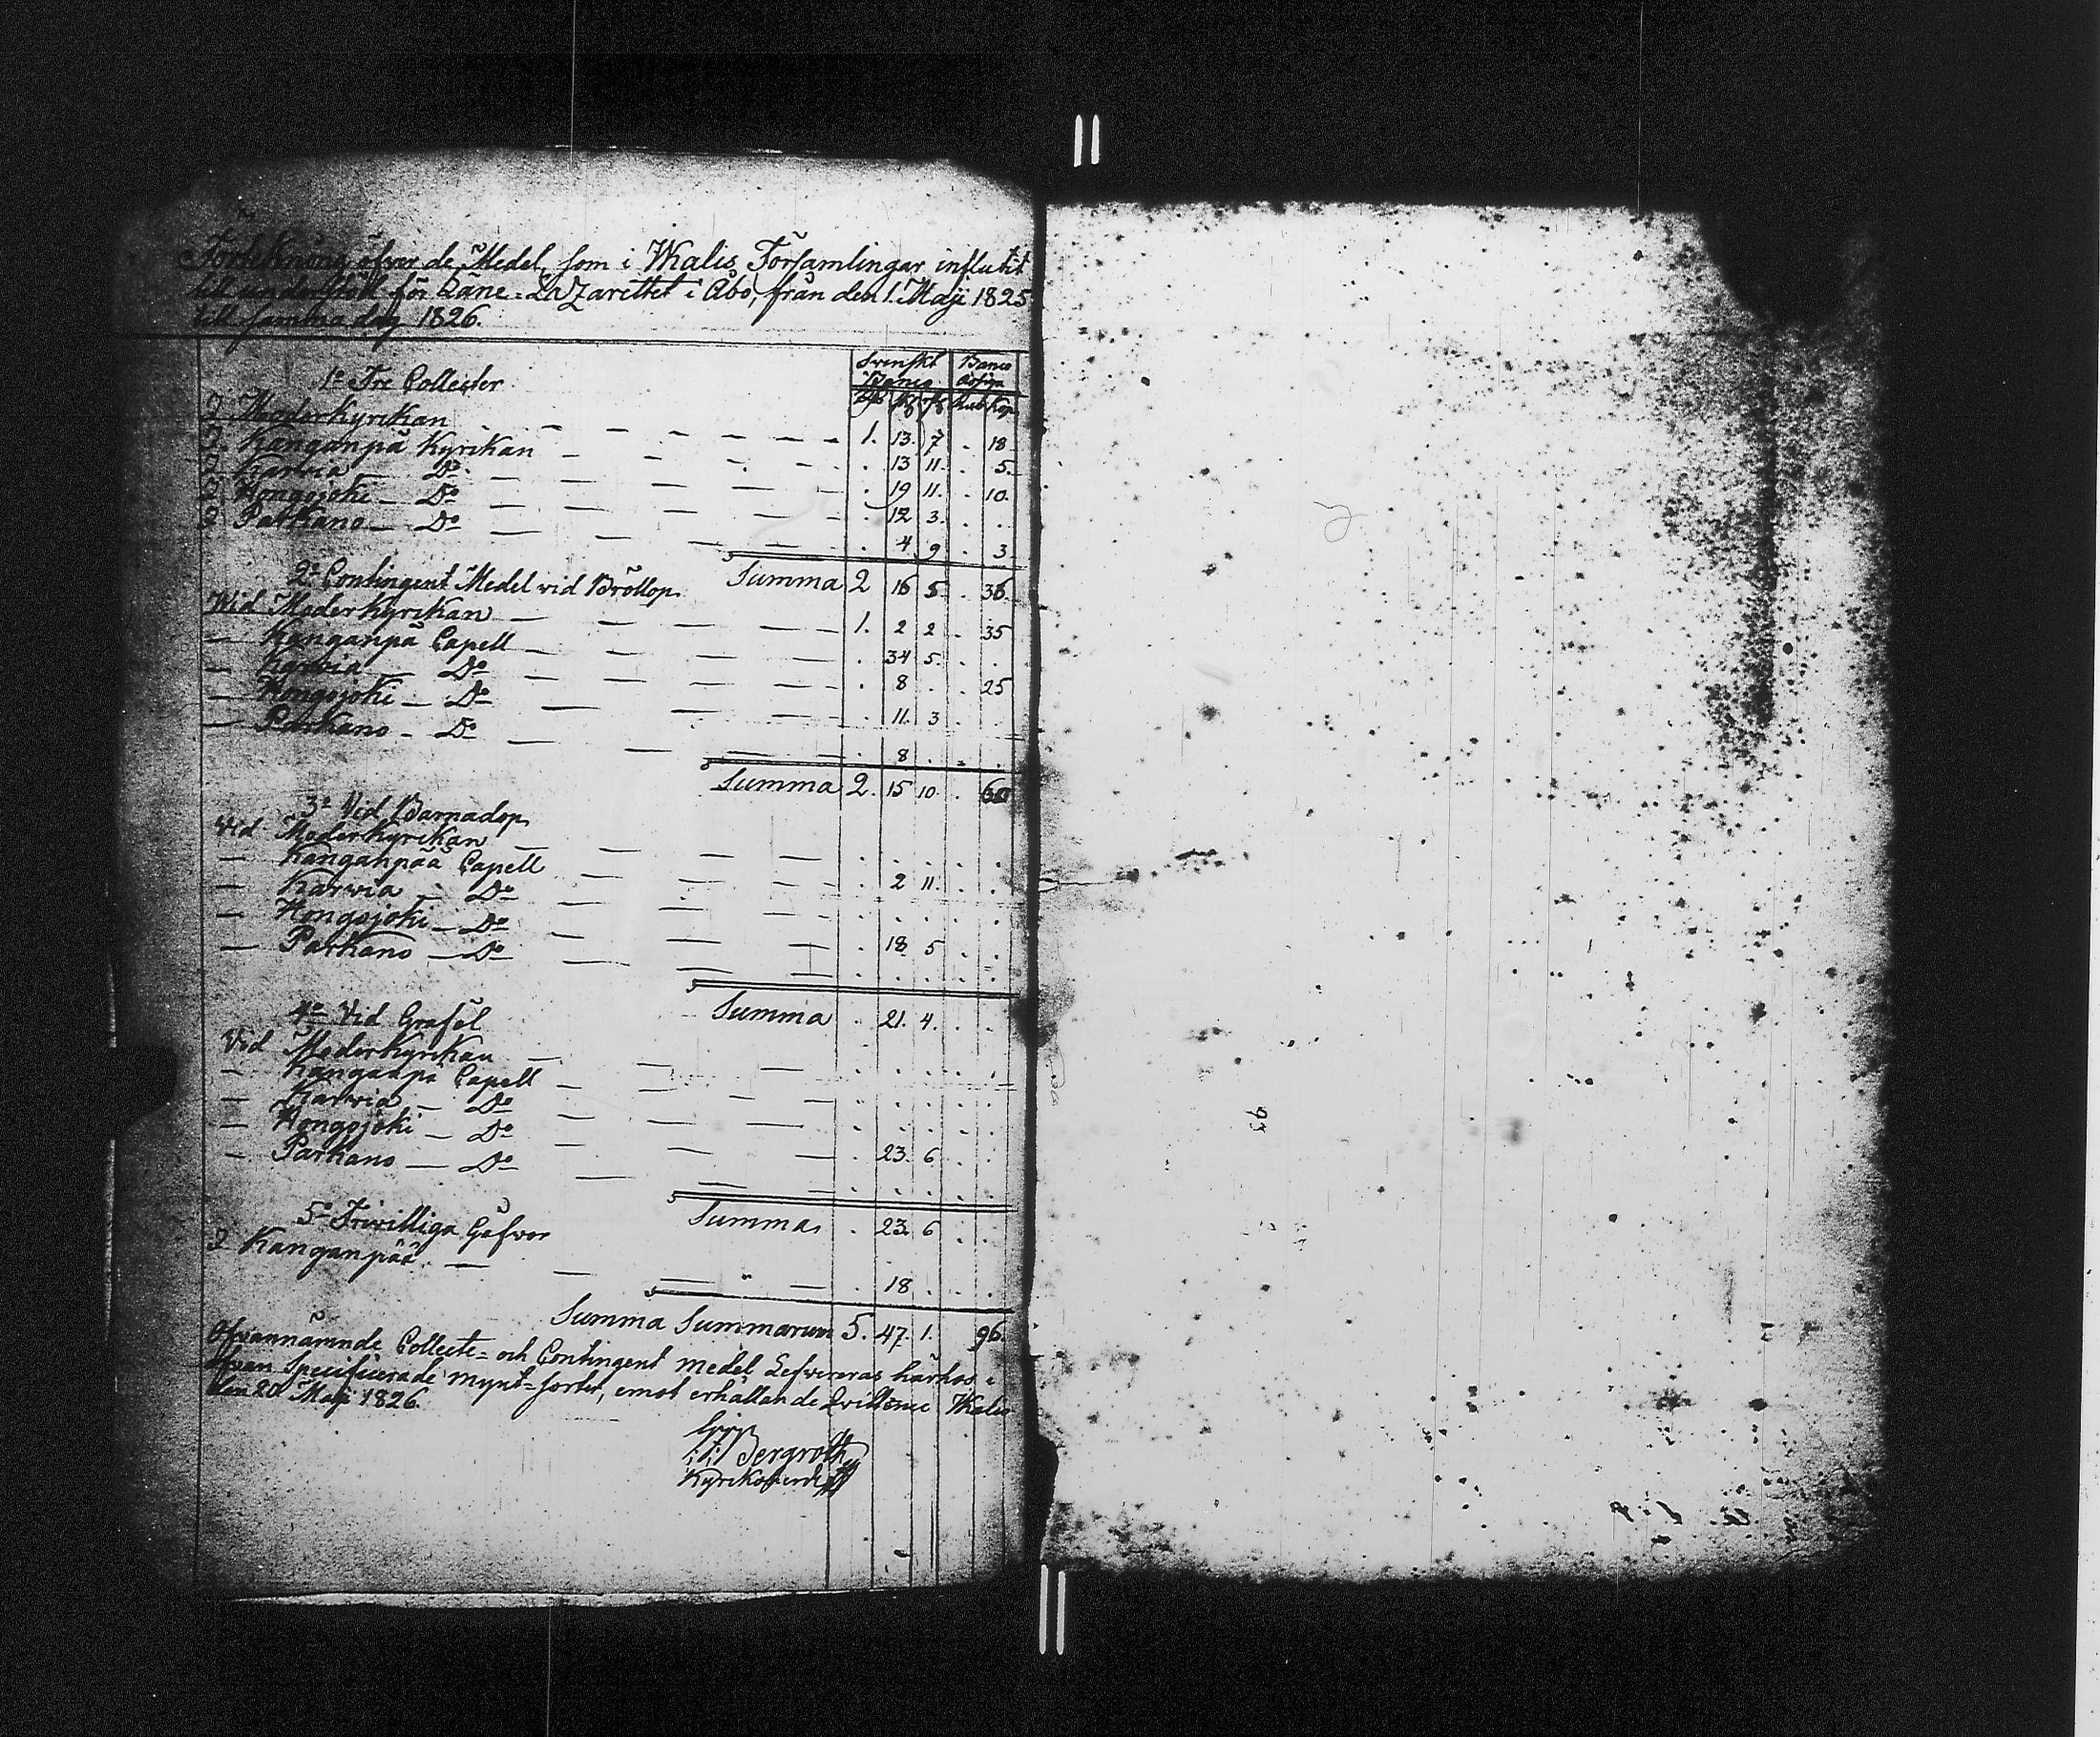 Förtekning öfver de Medel, som i Ikalis Församlingar influtit
till underhåll för Läne-Lazarettet i Åbo, från den 1. Maji 1825
till samma dag 1826.
Svenskt Banco
Rdr sk rst Rub Kop
1o Tre Collecter
I Moderkyrkan — 1. 13. 7 . 18
I Kanganpä Kyrkan — . 13 11. . 5.
I Karvia — Do — . 19 11. . 10.
I Hongojoki — Do — . 12 3. . .
I Parkano — Do — . 4 9 . 3
Summa 2 16 5. . 36
2o Contingent Medel vid Bröllop.
Wid Moderkyrkan — 1. 2 2 . 35
— Kanganpä Capell — . 34 5. . .
— Karvia — Do — . 8 . . 25
— Hongojoki — Do — . 11. 3
— Parkano — Do — . 8 . . .
Summa 2. 15 10. . 60
3o Vid Barnadop
Vid Moderkyrkan — . . . . .
— Kanganpää Capell — . 2 11. . .
— Karvia — Do — . . . . .
— Hongojoki — Do — . 18 5 . .
— Parkano — Do — . . . . .
Summa . 21. 4. . .
4o Vid Graföl
Vid Moderkyrkan — . . . . .
— Kanganpä Capell — . . . . .
— Karvia — Do — . . . . .
— Hongojoki — Do — . 23. 6 . .
— Parkano — Do — . . . . .
Summa . 23. 6 . .
5o Friwilliga Gåfvor
I Kanganpää — . 18 . . .
Summa Summarum 5. 47. 1. 96.
Ofvannämnde Collecte- och Contingent medel Lefvereras härhos i
ofvan Specificerade mynt-sorter, emot erhållande Qvittence Ikalis
den 20 Maji 1826.
Bergroth
Kyrkoherde